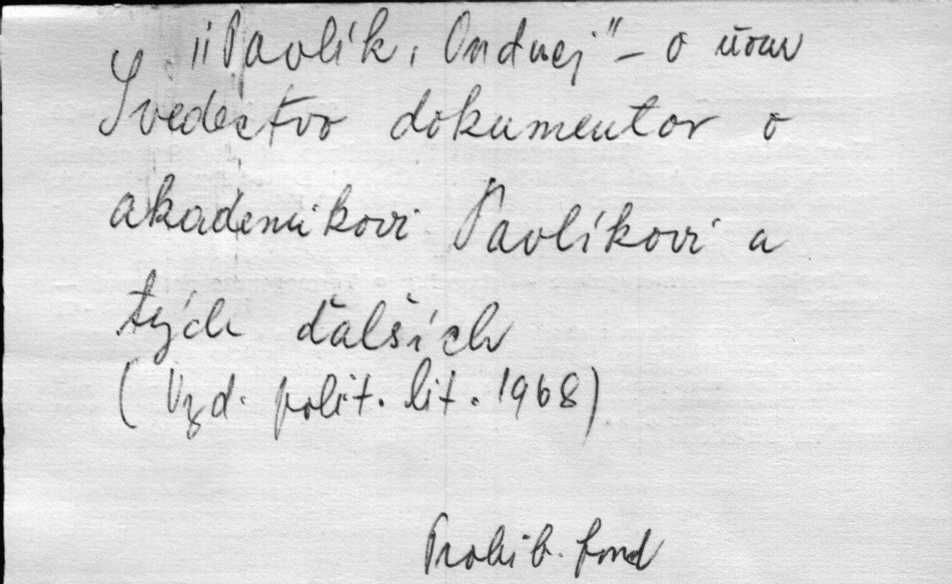 "Pavlík, Ondrej" – o ňom
Svedectvo dokumentov o
akademikovi Pavlíkovi a
tých ďalších
(Vyd. polit. lit. 1968)
Prohib. fond